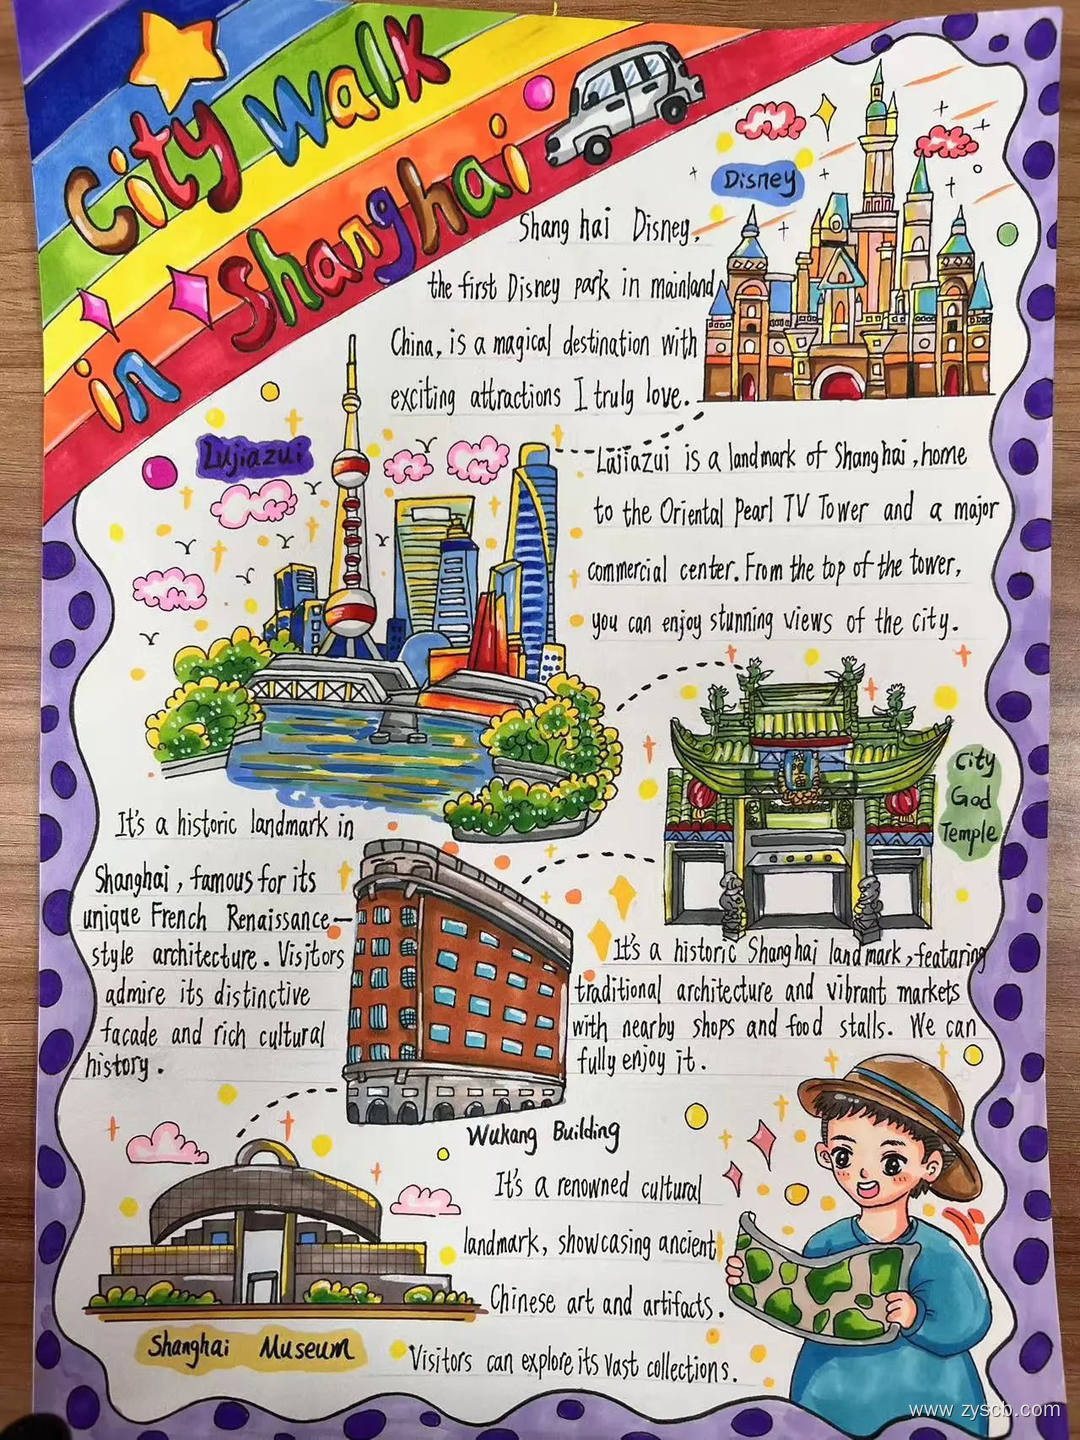 City Walk
in Shanghai
Disney
Shang hai Disney,
the first Disney park in mainland
China, is a magical destination with
exciting attractions I truly love.
Lujiazui
Lujiazui is a landmark of Shanghai, home
to the Oriental Pearl TV Tower and a major
commercial center. From the top of the tower,
you can enjoy stunning views of the city.
City
God
Temple
It's a historic Shanghai landmark, featuring
traditional architecture and vibrant markets
with nearby shops and food stalls. We can
fully enjoy it.
It's a historic landmark in
Shanghai, famous for its
unique French Renaissance-
style architecture. Visitors
admire its distinctive
facade and rich cultural
history.
Wukang Building
It's a renowned cultural
landmark, showcasing ancient
Chinese art and artifacts.
Visitors can explore its vast collections.
Shanghai Museum
www.zyscb.com